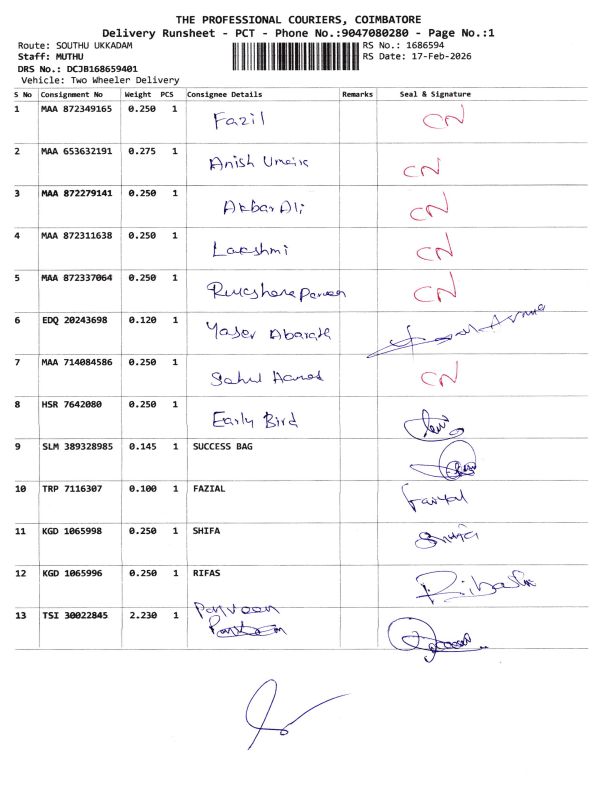 THE PROFESSIONAL COURIERS, COIMBATORE
Delivery Runsheet - PCT - Phone No.:9047080280 - Page No.:1
Route: SOUTHU UKKADAM RS No.: 1686594
Staff: MUTHU RS Date: 17-Feb-2026
DRS No.: DCJB168659401
Vehicle: Two Wheeler Delivery
S No Consignment No Weight PCS Consignee Details Remarks Seal & Signature
1 MAA 872349165 0.250 1 Fazil CN
2 MAA 653632191 0.275 1 Anish CN
3 MAA 872279141 0.250 1 Akbar Ali CN
4 MAA 872311638 0.250 1 Lakshmi CN
5 MAA 872337064 0.250 1 CN
6 EDQ 20243698 0.120 1 Yaser
7 MAA 714084586 0.250 1 CN
8 HSR 7642080 0.250 1 Early Bird
9 SLM 389328985 0.145 1 SUCCESS BAG
10 TRP 7116307 0.100 1 FAZIAL
11 KGD 1065998 0.250 1 SHIFA
12 KGD 1065996 0.250 1 RIFAS
13 TSI 30022845 2.230 1 Parveen